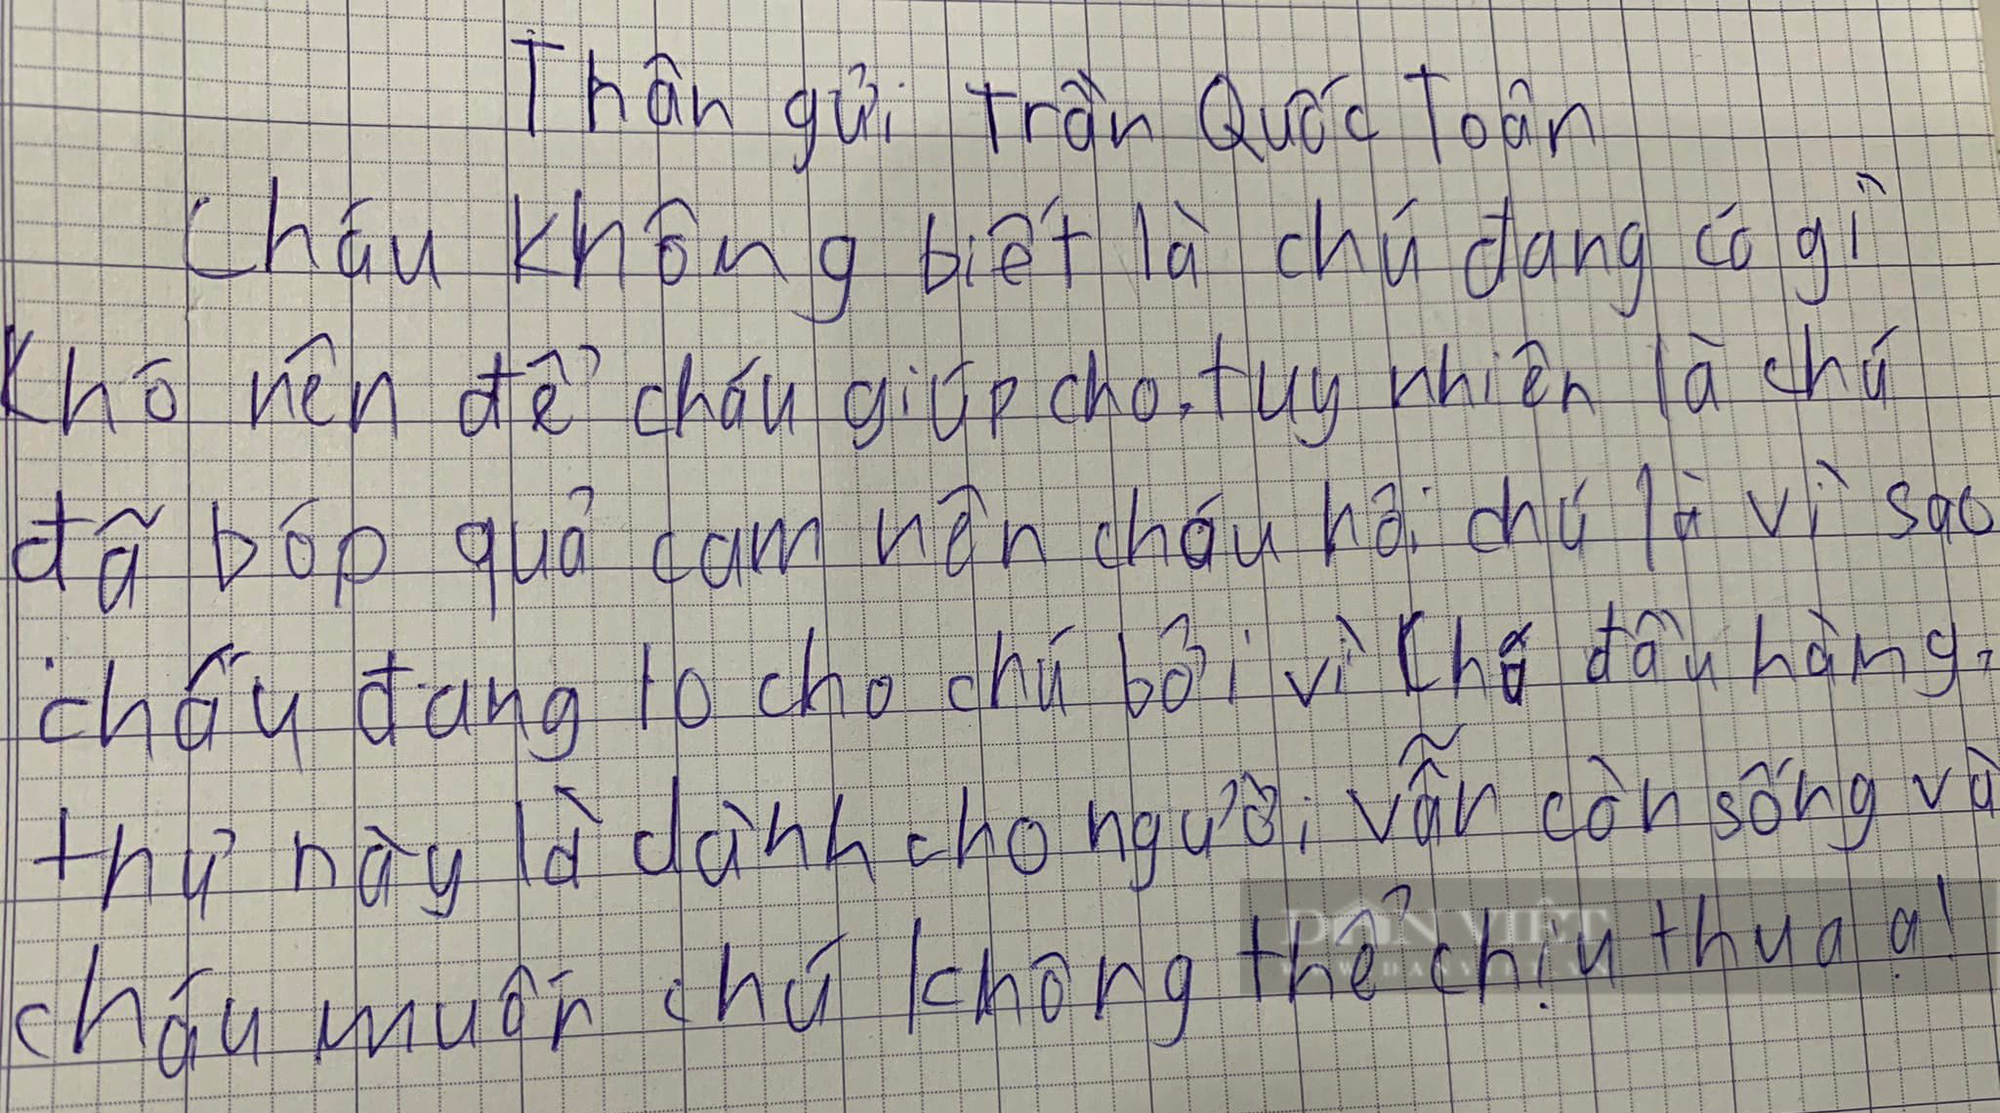 Thân gửi Trần Quốc Toản
Cháu không biết là chú đang có gì
khó nên để cháu giúp cho. tuy nhiên là chú
đã bóp quả cam nên cháu hỏi chú là vì sao
cháu đang lo cho chú bởi vì chú đầu hàng,
thư này là dành cho người vẫn còn sống và
cháu muốn chú không thể chịu thua ạ!
DÂN VIỆT